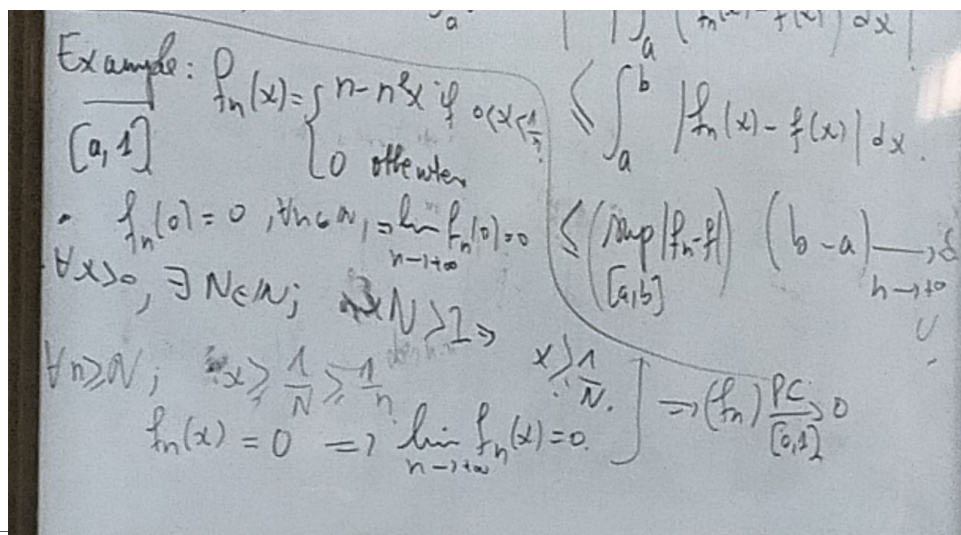 Example: fₙ(x) = { n - n²x if 0<x<1/n
[0,1] { 0 otherwise
• fₙ(0) = 0, ∀n∈ℕ, ⇒ lim_{n→+∞} fₙ(0)=0
∀x>0, ∃ N∈ℕ; xN ≥ 1 ⇒ x ≥ 1/N.
∀n≥N; x ≥ 1/N ≥ 1/n
fₙ(x) = 0 ⇒ lim_{n→+∞} fₙ(x)=0. ] ⇒ (fₙ) PC→ 0 [0,1]
| ∫_a (fₙ(x) - f(x)) dx |
≤ ∫_a^b |fₙ(x) - f(x)| dx.
≤ (sup_{[a,b]} |fₙ-f|) (b-a) → 0 n→+∞